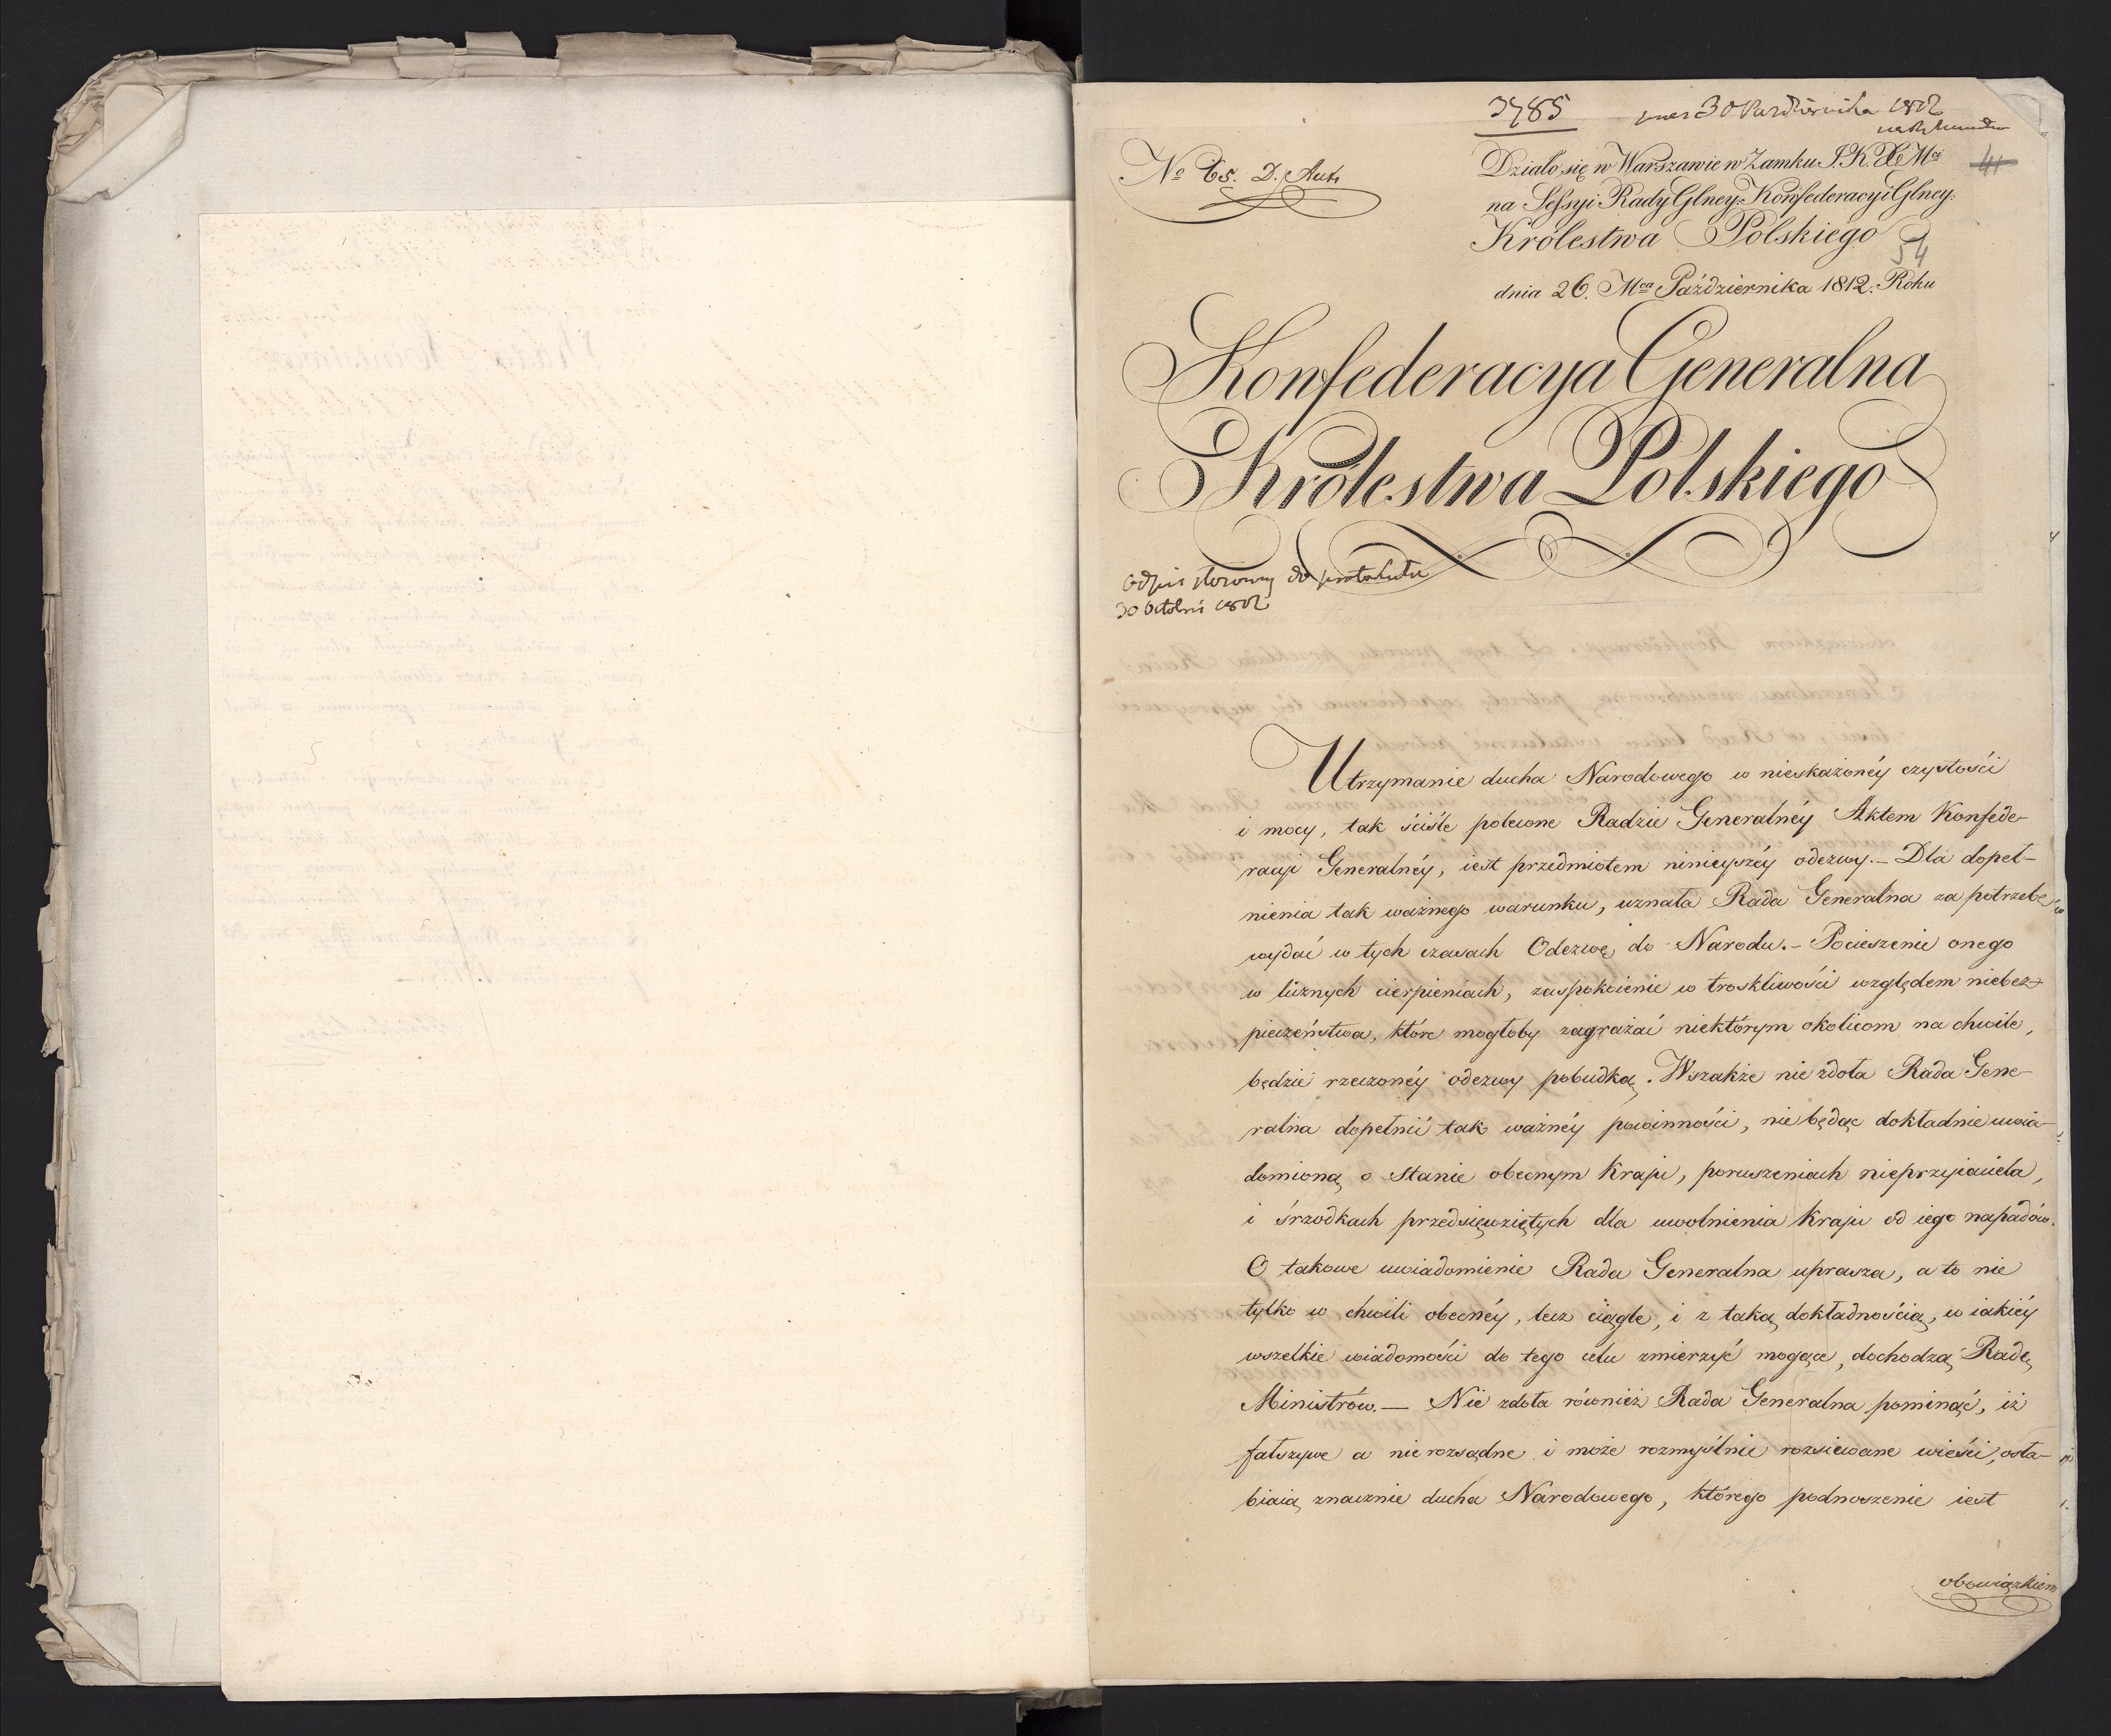 3785
30 Października 1812
No 65. D. Aut.
Działo się w Warszawie w Zamku J. K. X. Mci
41
na Sessyi Rady Glney: Konfederacyi Glney:
Królestwa Polskiego
54
dnia 26. Mca Października 1812. Roku
Konfederacya Generalna
Królestwa Polskiego
do protokułu
30 1812
Utrzymanie ducha Narodowego w nieskażonéy czystości
i mocy, tak ściśle polecone Radzie Generalnéy Aktem Konfede-
racyi Generalnéy, iest przedmiotem ninieyszéy odezwy. – Dla dopeł-
nienia tak ważnego warunku, uznała Rada Generalna za potrzebę
wydać w tych czasach Odezwę do Narodu. – Pocieszenie onego
w licznych cierpieniach, zaspokoienie w troskliwości względem niebez-
pieczeństwa, które mogłoby zagrażać niektórym okolicom na chwile,
będzie rzeczonéy odezwy pobudką. Wszakże nie zdoła Rada Gene-
ralna dopełnić tak ważnéy powinności, nie będąc dokładnie uwia-
domioną o stanie obecnym Kraju, poruszeniach nieprzyiaciela,
i śrzodkach przedsięwziętych dla uwolnienia Kraju od iego napadów.
O takowe uwiadomienie Rada Generalna uprasza, a to nie
tylko w chwili obecnéy, lecz ciągle, i z taką dokładnością, w iakiéy
wszelkie wiadomości do tego celu zmierzyć mogące, dochodzą Radę
Ministrów. — Nie zdoła również Rada Generalna pominąć, iż
fałszywe a nierozsądne i może rozmyślnie rozsiewane wieści, osła-
biaią znacznie ducha Narodowego, którego podnoszenie iest
obowiązkiem